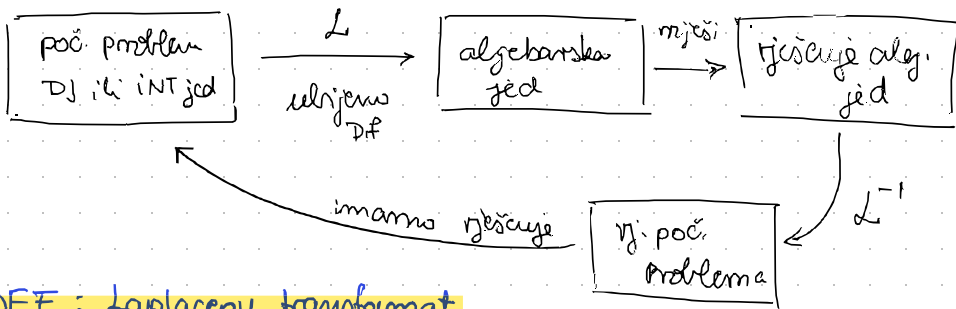 poč. problem
DJ ili INT jed
L
ubijemo
Df
algebarska
jed
riješi
rješenje alg.
jed
L⁻¹
rj. poč.
problema
imamo rješenje
DEF: Laplaceov transformat